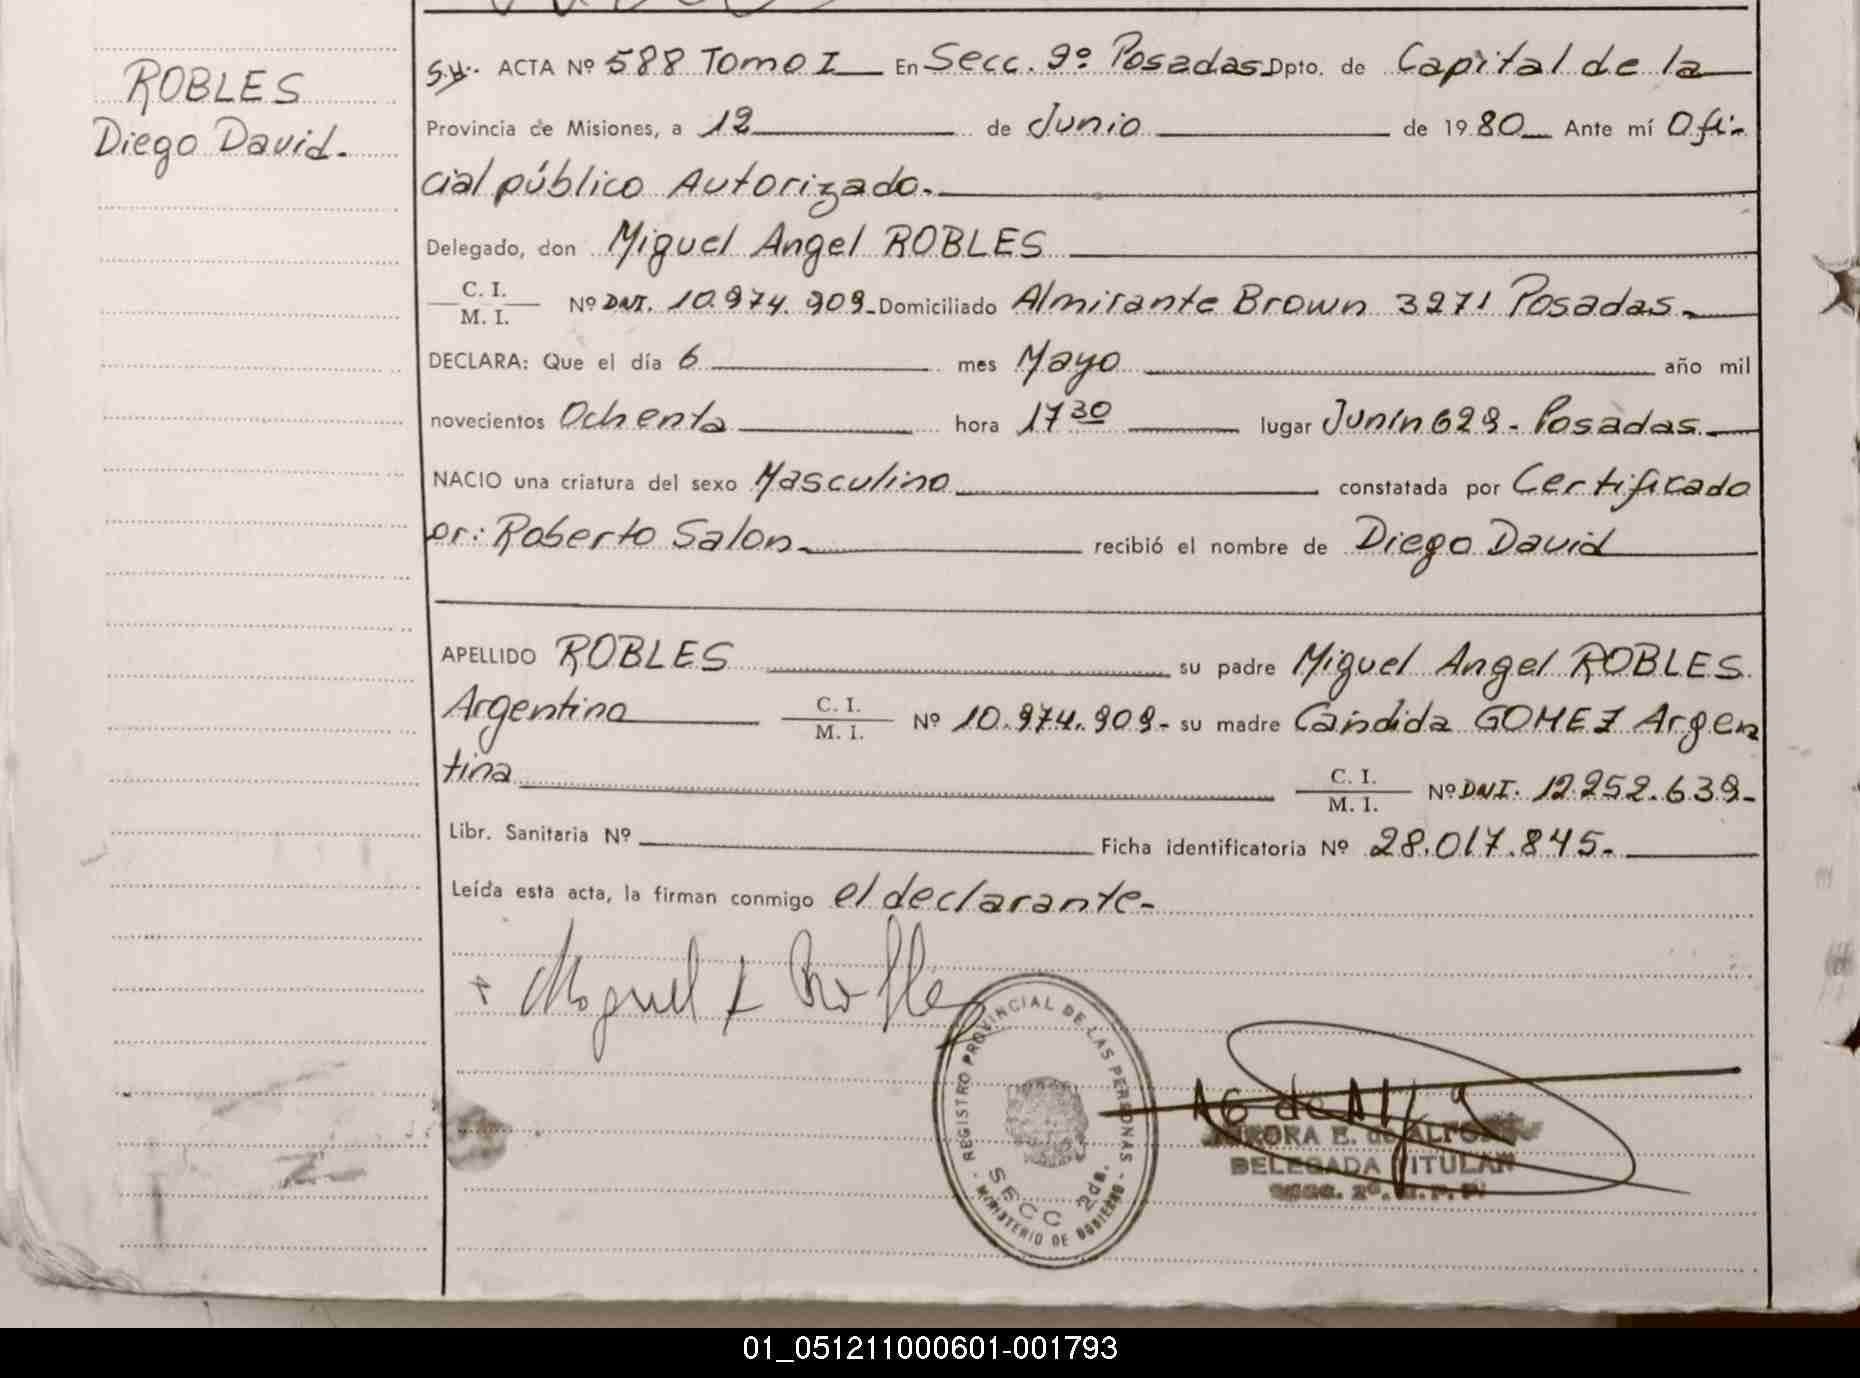 ROBLES
Diego David.
S.H. ACTA Nº 588 Tomo I En Secc. 9º Posadas Dpto. de Capital de la
Provincia de Misiones, a 12 de Junio de 1980 Ante mí Ofi-
cial público Autorizado.
Delegado, don Miguel Angel ROBLES
C. I.
M. I. Nº DNI. 10.974.909 - Domiciliado Almirante Brown 3271 Posadas.
DECLARA: Que el día 6 mes Mayo año mil
novecientos Ochenta hora 17 30 lugar Junín 629 - Posadas.
NACIO una criatura del sexo Masculino constatada por Certificado
Dr: Roberto Salon. recibió el nombre de Diego David
APELLIDO ROBLES su padre Miguel Angel ROBLES
Argentino C. I.
M. I. Nº 10.974.909 - su madre Cándida GOMEZ Argen
tina C. I.
M. I. Nº DNI. 12.252.639 -
Libr. Sanitaria Nº Ficha identificatoria Nº 28.017.845.
Leída esta acta, la firman conmigo el declarante -
Miguel A Robles
REGISTRO PROVINCIAL DE LAS PERSONAS
SECC 2da.
MINISTERIO DE GOBIERNO
AURORA E. de
DELEGADA TITULAR
01_051211000601-001793